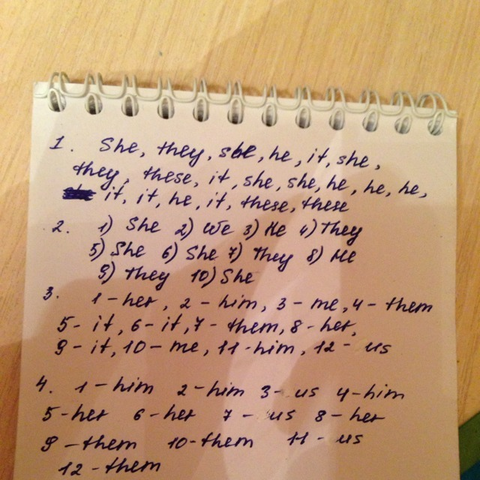 1. She, they, she, he, it, she,
they, these, it, she, she, he, he, he,
it, it, he, it, these, these
2. 1) She 2) We 3) He 4) They
5) She 6) She 7) They 8) He
9) They 10) She
3. 1-her, 2-him, 3-me, 4-them
5-it, 6-it, 7-them, 8-her,
9-it, 10-me, 11-him, 12-us
4. 1-him 2-him 3-us 4-him
5-her 6-her 7-us 8-her
9-them 10-them 11-us
12-them